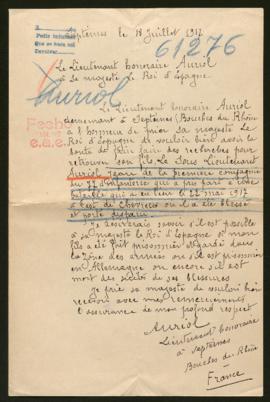 Septèmes le 18 Juillet 1917
61276
Le Lieutenant honoraire Auriol
à sa majesté Le Roi d'Espagne
Auriol
Le Lieutenant honoraire Auriol
demeurant à Septèmes (Bouches du Rhône
a l'honneur de prier sa majesté Le
Roi d'Espagne de vouloir bien avoir la
bonté de faire faire des recherches pour
retrouver son fils Le Sous Lieutenant
Auriol Jean de la première compagnie
du d'infanterie qui a pris part à
bataille qui a eu lieu le mai 1917
à l'est de Chevreux où il a été blessé
et porté disparu.
Je désirerais savoir s'il est possible
à sa majesté le Roi d'Espagne si mon
fils a été fait prisonnier et gardé dans
la zone des armées ou s'il est prisonnier
en Allemagne ou encore s'il est
mort des suites de ses blessures
Je prie sa majesté de vouloir bien
recevoir avec mes remerciements
l'assurance de mon profond respect
Auriol
Lieutenant honoraire
à Septèmes
Bouches du Rhône
France